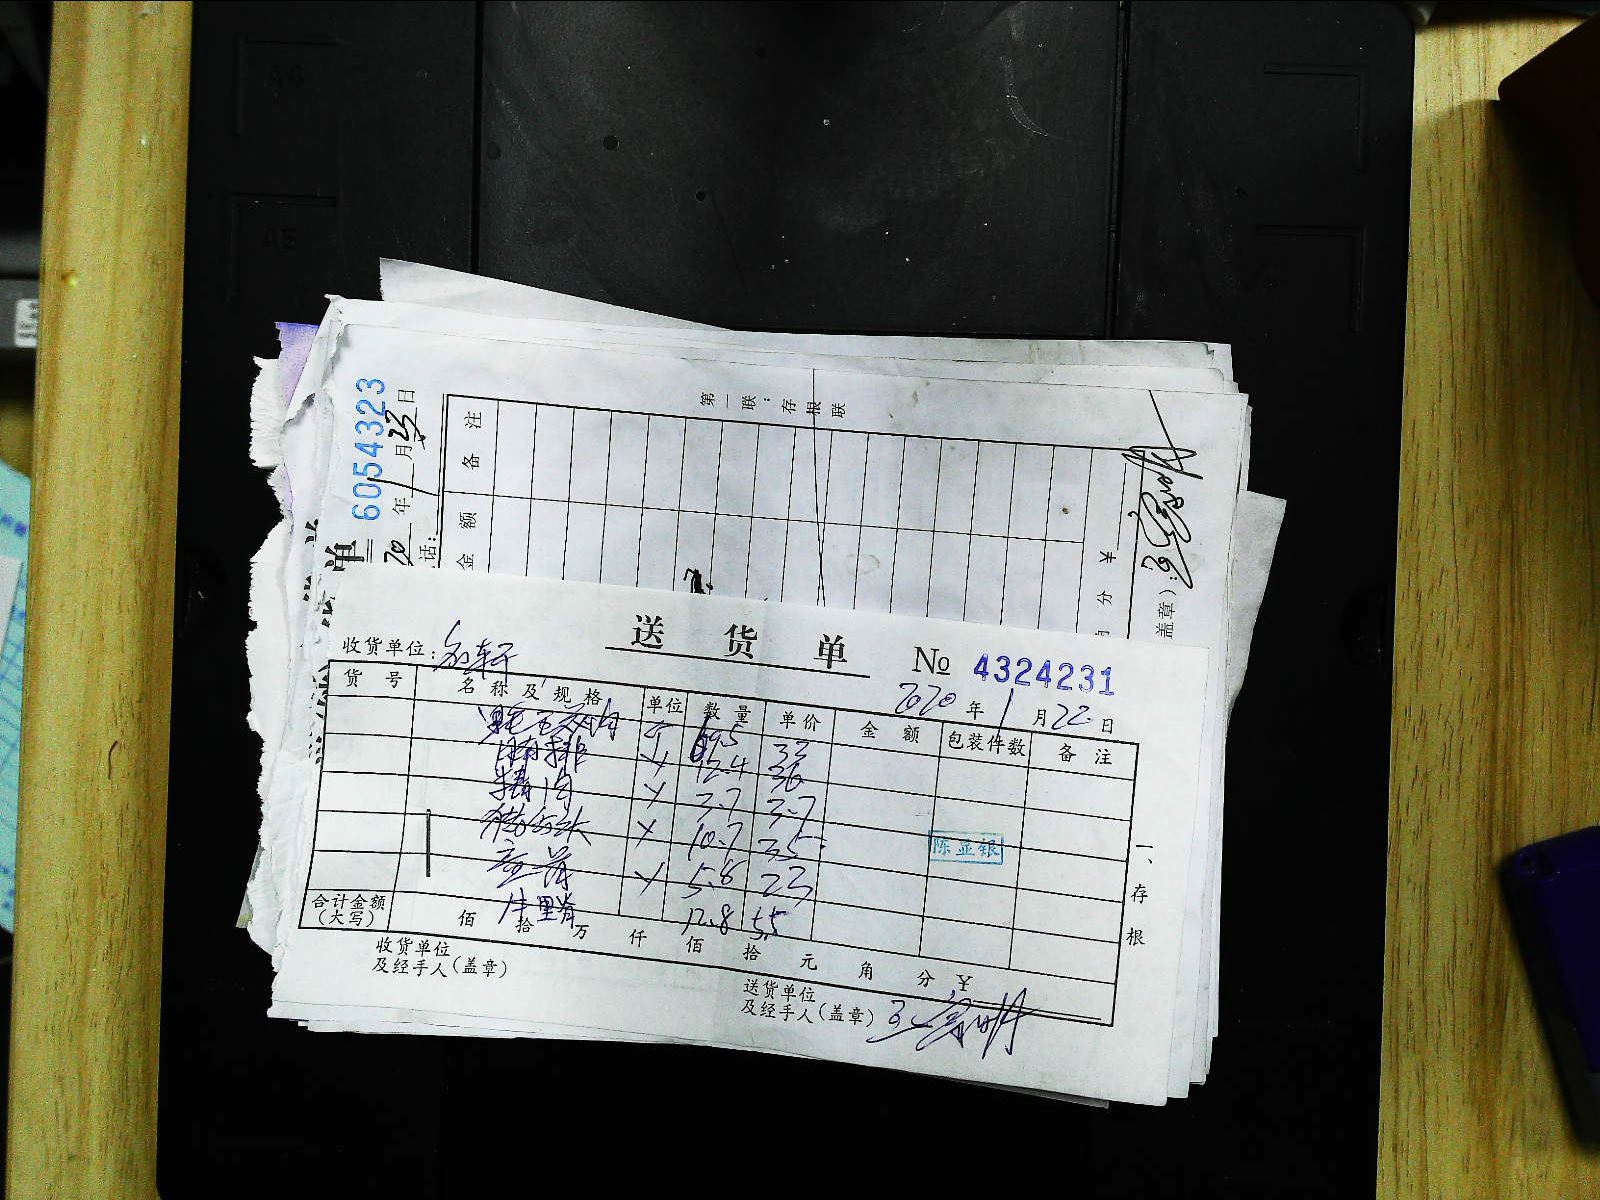 6054323
年 1 月 23 日
话:
备 注
金 额
第 一 联 : 存 根 联
分 ¥
盖章):
送 货 单
№ 4324231
收货单位:
2020 年 1 月 22 日
货 号 名 称 及 规 格 单位 数 量 单价 金 额 包装件数 备 注
69.5 33
排 12.4 36
3.7 3.7
10.7 35
5.6 23
牛里脊 12.8 55
陈显银
一、存根
合计金额(大写) 佰 拾 万 仟 佰 拾 元 角 分 ¥
收货单位
及经手人(盖章)
送货单位
及经手人(盖章)
A4
A5